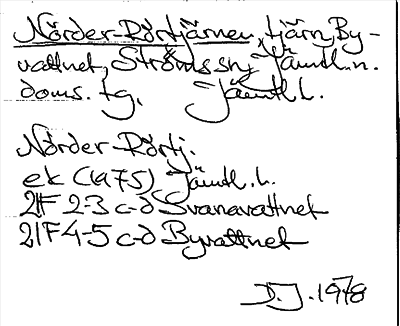 Nörder-Rörtjärnen, tjärn, By-
vattnet, Ströms sn, Jämtl. n.
doms. tg. Jämtl. l.
Nörder-Rörtj.
ek (1a75) Jämtl. l.
21F 2-3 c-d Svanavattnet
21F 4-5 c-d Byvattnet
D.J. 1978